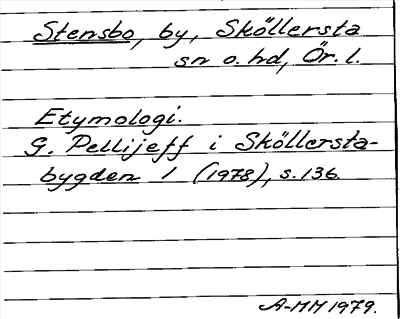 Stensbo, by, Sköllersta
sn o. hd, Ör. l.
Etymologi.
G. Pellijeff i Sköllersta-
bygden 1 (1978), s. 136.
A-MM 1979.